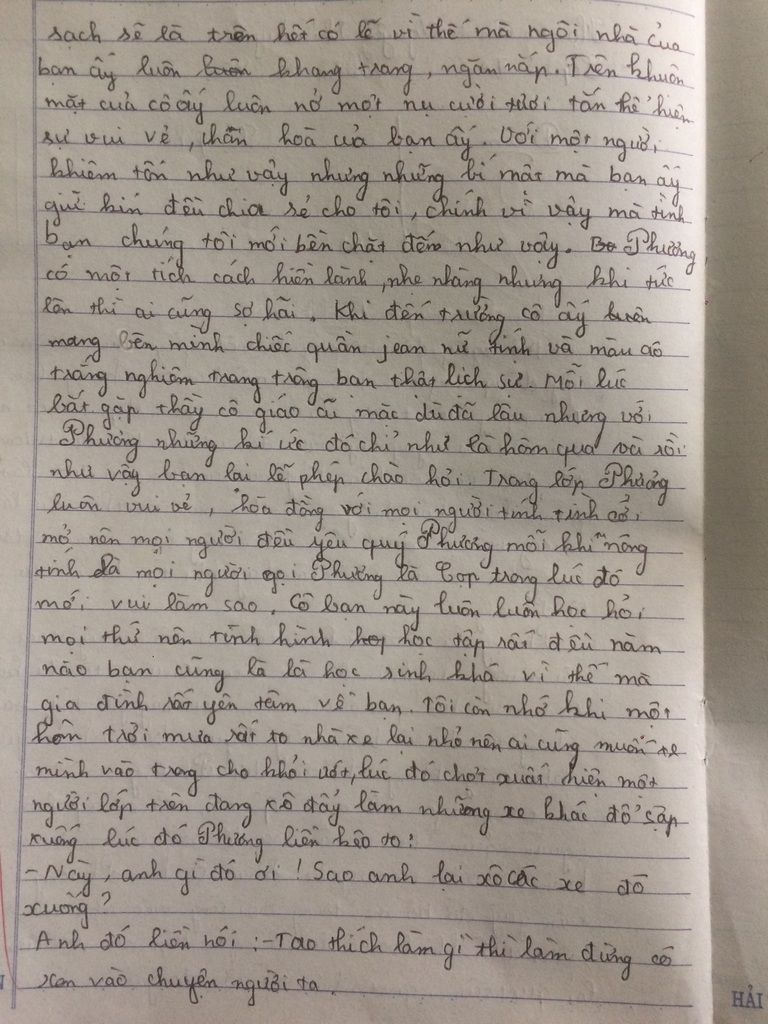 sạch sẽ là trên hết có lẽ vì thế mà ngôi nhà của
bạn ấy luôn luôn khang trang, ngăn nắp. Trên khuôn
mặt của cô ấy luôn nở một nụ cười tươi tắn thể hiện
sự vui vẻ, chân hoà của bạn ấy. Với một người
khiêm tốn như vậy nhưng những bí mật mà bạn ấy
giữ kín đều chia sẻ cho tôi, chính vì vậy mà tình
bạn chúng tôi mới bền chặt đến như vậy. Phương
có một tích cách hiền lành, nhẹ nhàng nhưng khi tức
lên thì ai cũng sợ hãi. Khi đến trường cô ấy luôn
mang bên mình chiếc quần jean nữ tính và màu áo
trắng nghiêm trang trông bạn thật lịch sự. Mỗi lúc
bắt gặp thầy cô giáo cũ mặc dù đã lâu nhưng với
Phương những kí ức đó chỉ như là hôm qua và rồi
như vậy bạn lại lễ phép chào hỏi. Trong lớp Phương
luôn vui vẻ, hòa đồng với mọi người tính tình cởi
mở nên mọi người đều yêu quý Phương mỗi khi nóng
tính là mọi người gọi Phương là Cọp trong lúc đó
mới vui làm sao. Cô bạn này luôn luôn học hỏi
mọi thứ nên tình hình học tập rất đều năm
nào bạn cũng là là học sinh khá vì thế mà
gia đình rất yên tâm về bạn. Tôi còn nhớ khi một
hôm trời mưa rất to nhà xe lại nhỏ nên ai cũng muốn xe
mình vào trong cho khỏi ướt, lúc đó chợt xuất hiện một
người lớp trên đang xô đẩy làm những xe khác đổ sập
xuống lúc đó Phương liền kêo to:
- Này, anh gì đó ơi! Sao anh lại xô các xe đó
xuống?
Anh đó liền nói: - Tao thích làm gì thì làm đừng có
xen vào chuyện người ta.
HẢI